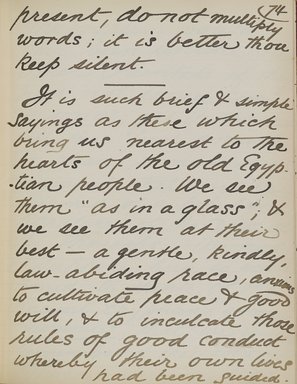 74
present, do not multiply
words; it is better thou
keep silent.
It is such brief & simple
sayings as these which
bring us nearest to the
hearts of the old Egyp-
-tian people. We see
them "as in a glass"; &
we see them at their
best — a gentle, kindly,
law-abiding race, anxious
to cultivate peace & good
will, & to inculcate those
rules of good conduct
whereby their own lives
had been guided